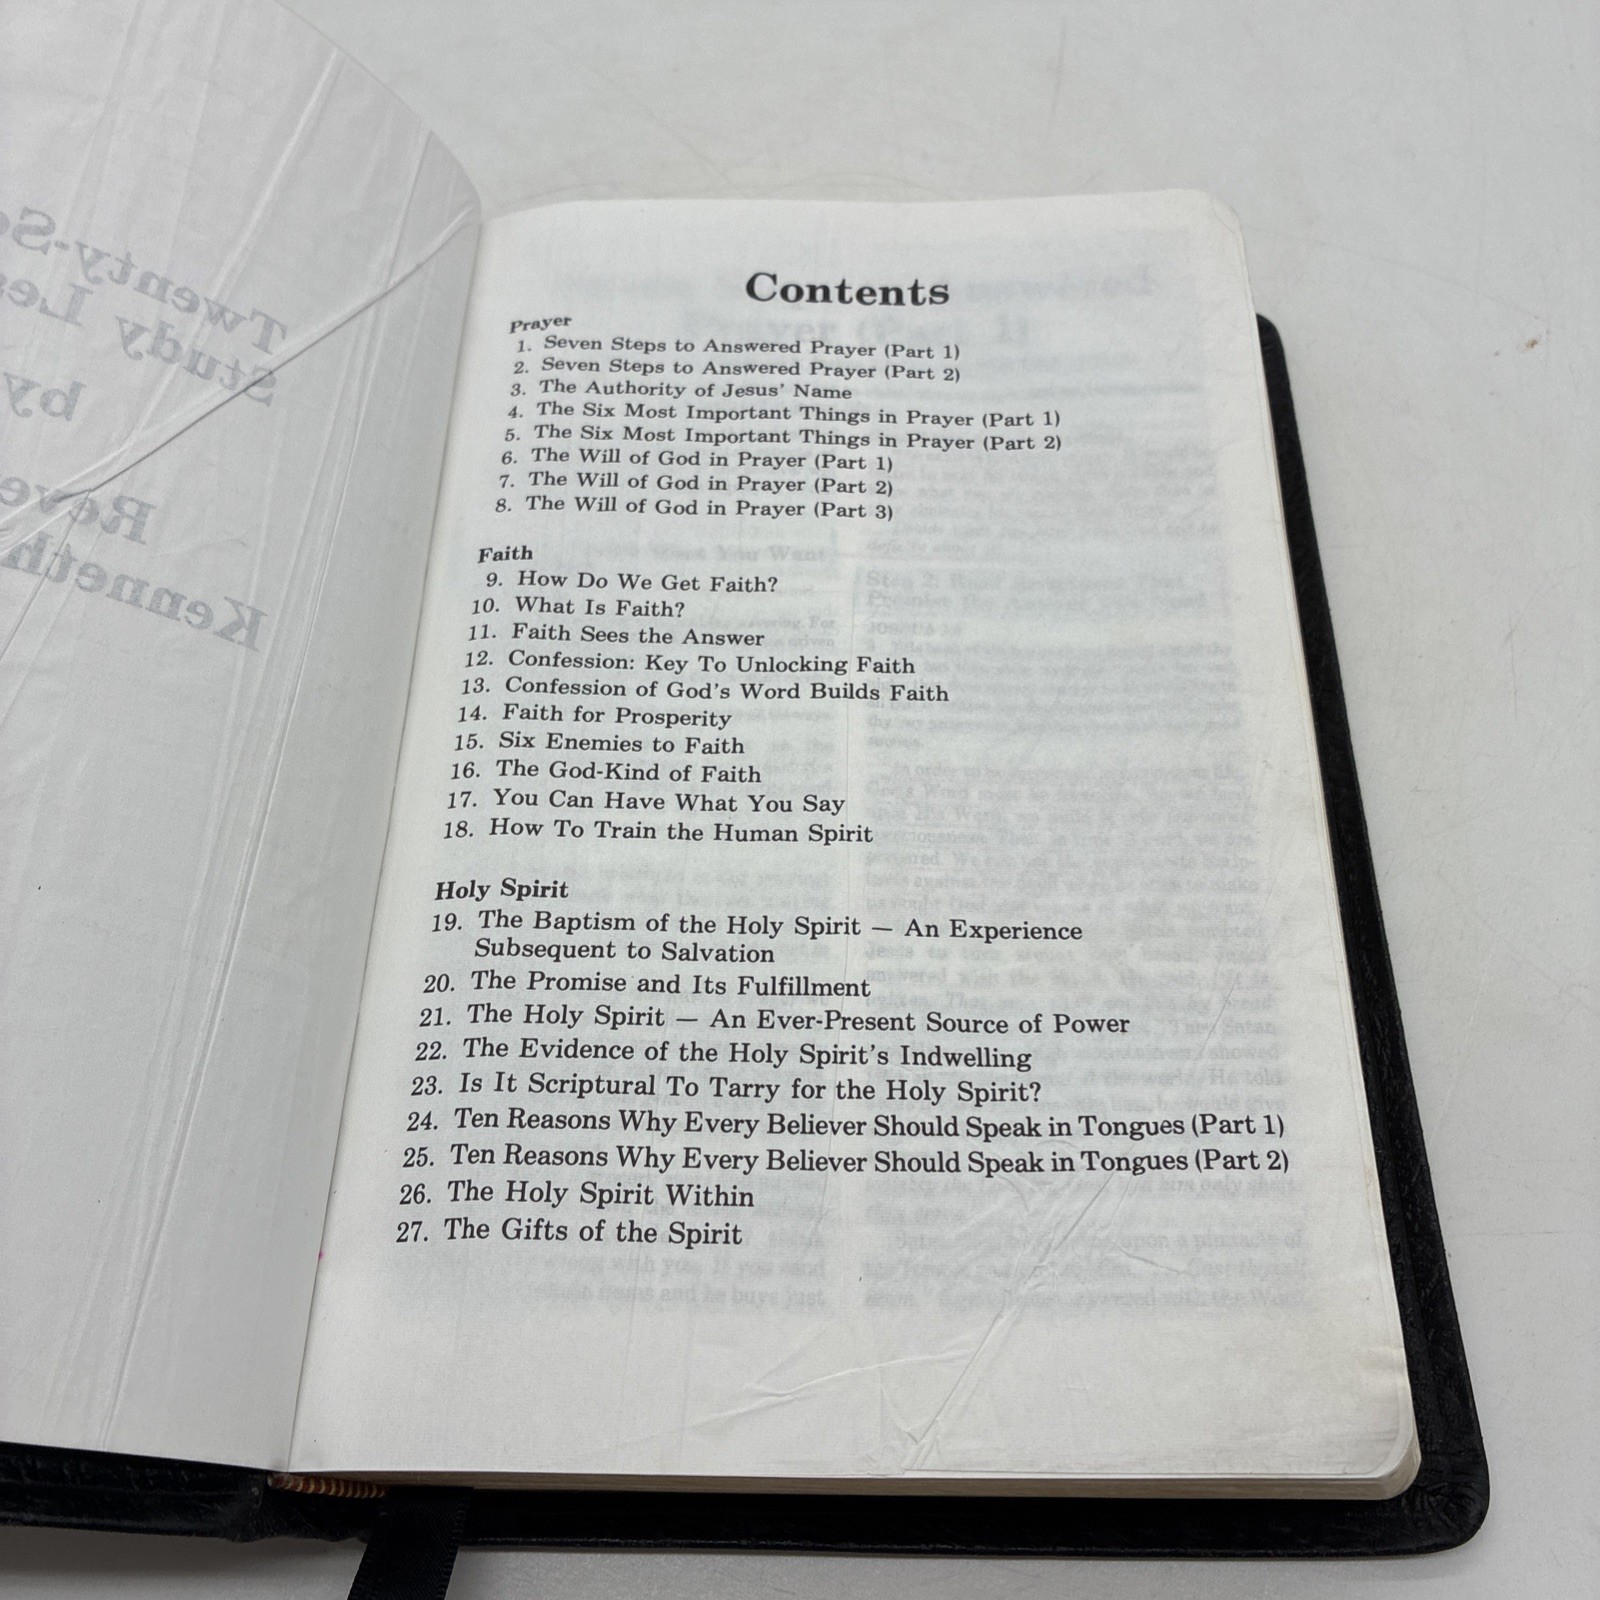 Twenty-Se
Study Les
by
Reve
Kenneth
Contents
Prayer
1. Seven Steps to Answered Prayer (Part 1)
2. Seven Steps to Answered Prayer (Part 2)
3. The Authority of Jesus' Name
4. The Six Most Important Things in Prayer (Part 1)
5. The Six Most Important Things in Prayer (Part 2)
6. The Will of God in Prayer (Part 1)
7. The Will of God in Prayer (Part 2)
8. The Will of God in Prayer (Part 3)
Faith
9. How Do We Get Faith?
10. What Is Faith?
11. Faith Sees the Answer
12. Confession: Key To Unlocking Faith
13. Confession of God's Word Builds Faith
14. Faith for Prosperity
15. Six Enemies to Faith
16. The God-Kind of Faith
17. You Can Have What You Say
18. How To Train the Human Spirit
Holy Spirit
19. The Baptism of the Holy Spirit — An Experience
Subsequent to Salvation
20. The Promise and Its Fulfillment
21. The Holy Spirit — An Ever-Present Source of Power
22. The Evidence of the Holy Spirit's Indwelling
23. Is It Scriptural To Tarry for the Holy Spirit?
24. Ten Reasons Why Every Believer Should Speak in Tongues (Part 1)
25. Ten Reasons Why Every Believer Should Speak in Tongues (Part 2)
26. The Holy Spirit Within
27. The Gifts of the Spirit